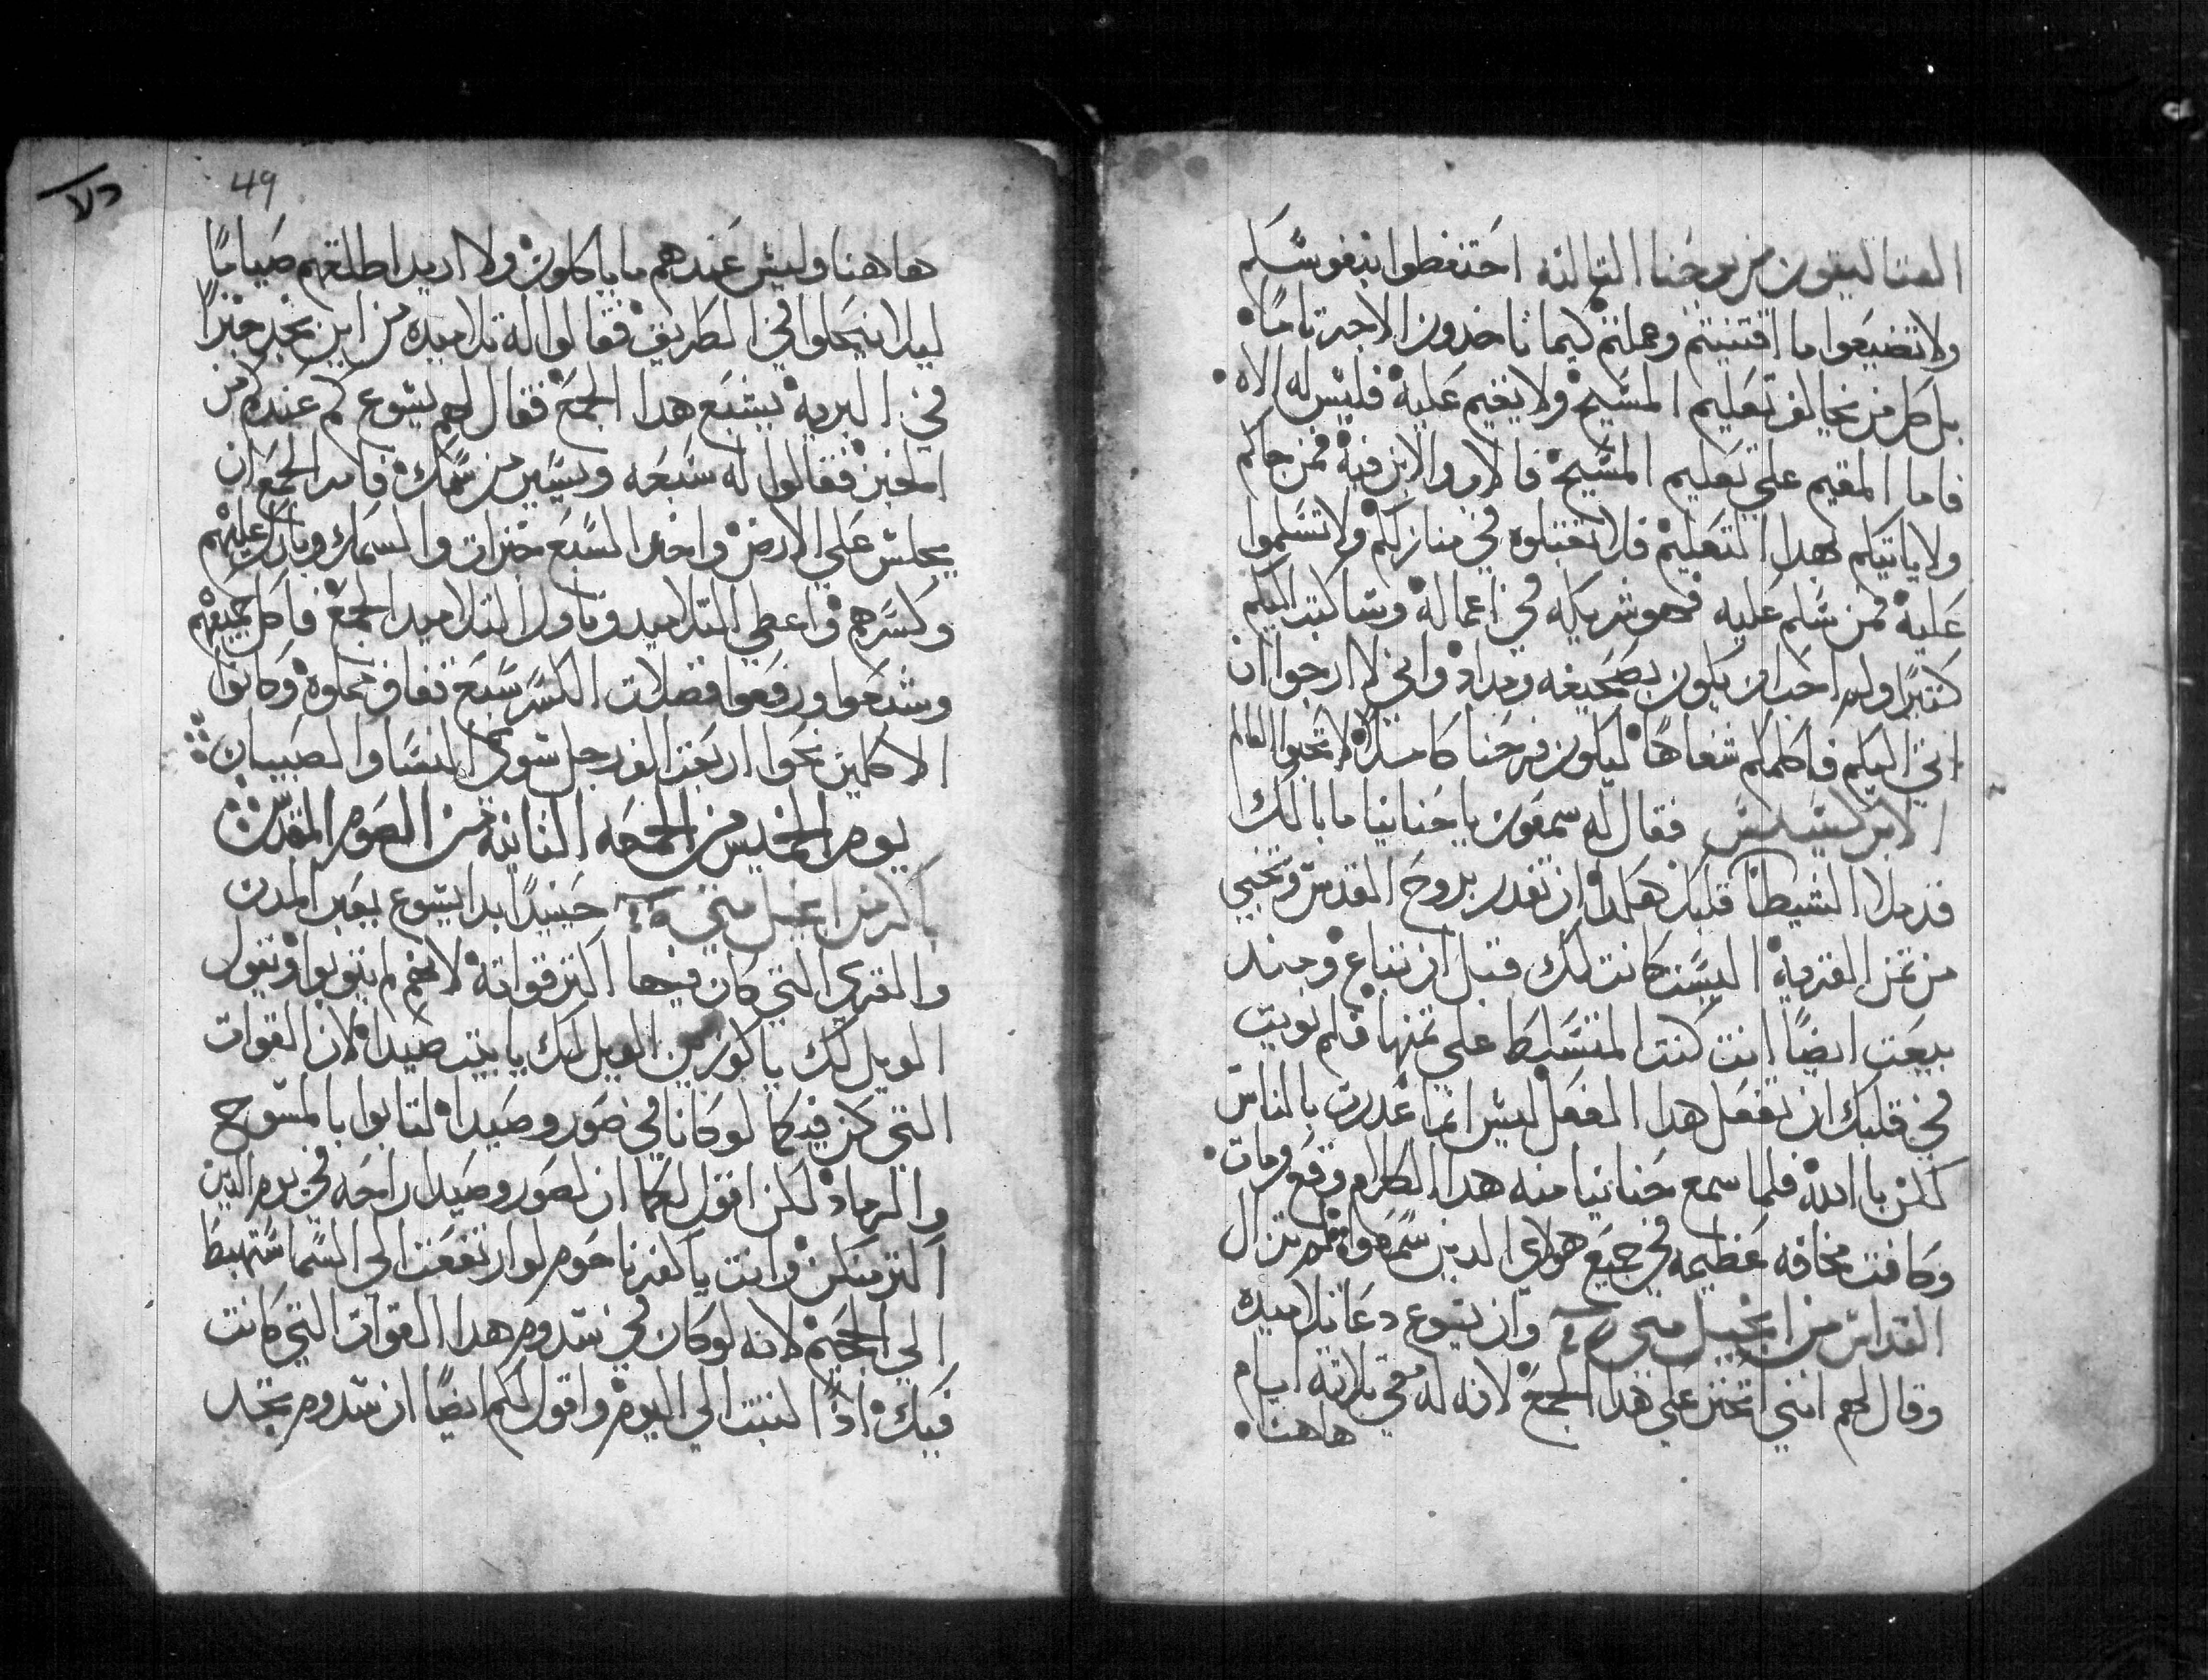 القتاليقون من يوحنا التالته احتفظوا بنفوسكم
ولا تضيعوا ما اقتنيتم وعملتم كيما تاخدون الاجر تامًا
بل كل من يخالف تعليم المسيح ولا يقيم عليه فليس له الاه
فاما المقيم علي تعليم المسيح فالاب والابن فيه فمن جاكم
ولا ياتيكم بهدا التعليم فلا تقبلوه في منازلكم ولا تسلموا
عليه فمن سلم عليه فهو شريكه في اعماله وساكتب اليكم
كتيرًا ولم احب ان يكون بصحيفه ومداد واني لا ارجوا ان
اتي اليكم فاكلمكم شفاهًا ليكون فرحنا كاملًا لا تحبوا العالم
الابركسيس فقال له سمعون يا حنانيا ما بالك
قد ملا الشيطان قلبك هكدا ان تغدر بروح القدس وتخبي
من تمن القريه اليست كانت لك قبل ان تباع ومند
بيعت ايضًا انت كنت المتسلط علي تمنها فلم نويت
في قلبك ان تفعل هدا الفعل ليس انما غدرت بالناس
لكن بالله فلما سمع حنانيا منه هدا الكلام وقع ومات
وكانت مخافه عظيمه في جميع هولاي الدين سمعوا لم تزال
القداس من انجيل متي وان يسوع دعا تلاميده
وقال لهم انني اتحنن علي هدا الجمع لانه له معي تلاتة ايام
هاهنا
49
هاهنا وليس عندهم ما ياكلون ولا اريد اطلقهم صيامًا
ليلا ينحلوا في الطريق فقالوا له تلاميده من اين نجد خبزًا
في البريه يشبع هدا الجمع فقال لهم يسوع كم عندكم من
الخبز فقالوا له سبعه ويسير من سمك فامر الجمع ان
يجلس علي الارض واخد السبع خبزات والسمك وبارك عليهم
وكسرهم واعطي التلاميد وناول التلاميد الجمع فاكل جميعهم
وشبعوا ورفعوا فضلات الكسر سبع قفاف مملوه وكانوا
الاكلين نحوا اربعت الف رجل سوي النسا والصبيان
يوم الخميس من الجمعه التانيه من الصوم المقدس
باكر من انجيل متي حينيدًا بدا يسوع يعير المدن
والقري التي كان فيها اكتر قواته لانهم لم يتوبوا ويقول
الويل لك يا كورزين الويل لك يا بيت صيدا لان القوات
التي كن فيكما لو كانا في صور وصيدا لتابوا بالمسوح
والرماد لكن اقول لكما ان لصور وصيدا راحه في يوم الدين
اكتر منكن وانت يا كفرناحوم لو ارتفعت الي السما ستهبط
الي الجحيم لانه لو كان في سدوم هدا القوات التي كانت
فيك ادًا لتبت الي اليوم واقول لكم ايضًا ان سدوم تجد